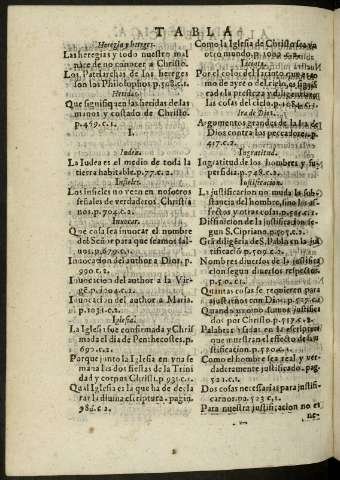 TABLA
Heregia y hereges.
Las heregias y todo nuestro mal
nace de no conocer a Christo.
Los Patriarchas de los hereges
son los Philosophos, p.508.c.1.
Heridas.
Que signifiquen las heridas de las
manos y costado de Christo.
p.469.c.1.
I.
Iudea.
La Iudea es el medio de toda la
tierra habitable.p.77.c.2.
Infieles.
Los infieles no veen en nosotros
señales de verdaderos Christia
nos.p.704.c.2.
Invocar.
Que cosa sea invocar el nombre
del Señor para que seamos sal-
vos.p.679.c.1.
Invocacion del author a Dios.p.
990.c.2.
Invocacion del author a la Vir-
gē.p.1204.c.2.
Invocacion del author a Maria.
p.1031.c.1.
Iglesia.
La Iglesia fue confirmada y Chris
mada el dia de Penthecostes.p.
690.c.2.
Porque junto la Iglesia en vna se
mana las dos fiestas de la Trini
dad y corpus Christi.p.931.c.1.
Qual es la Iglesia que ha de decla
rar la divina escriptura. pagin.
984.c.2.
Como la Iglesia de Christo sea vn
otro mundo.p.1082.c.2.
Por el color del jacinto que es co
mo de ayre o del cielo, es significa
las cosas del cielo.p.1084.c.1.
Ira de Dios.
Argumentos grandes de la Ira de
Dios contra los peccadores.p.
417.c.2.
Ingratitud.
Ingratitud de los hombres y su
perfidia.p.748.c.2.
Iustificacion.
La justificacion no muda la sub-
stancia del hombre, sino los af-
fectos y otras cosas.p.511.c.2.
Diffinicion de la justificacion se-
gun S.Cypriano.p.505.c.2.
Gradileguia de S.Pablo en la ju-
stificacion.p.509.c.2.
Nombres diversos de la justifica
cion segun diversos respectos.
p.505.c.1.
Quantas cosas se requieren para
justarnos con Dios.p.527.c.1
Quando y como somos justifica
dos por Christo.p.517.c.2.
Palabras usadas en la escriptura
que muestran el effecto de la ju-
stificacion.p.510.c.1.
Como el hombre sea real y ver-
daderamente justificado. pag.
521.c.1.
Dos cosas necessarias para justifi-
carnos.pa.523.c.1.
Para nuestra justificacion no es
ne-